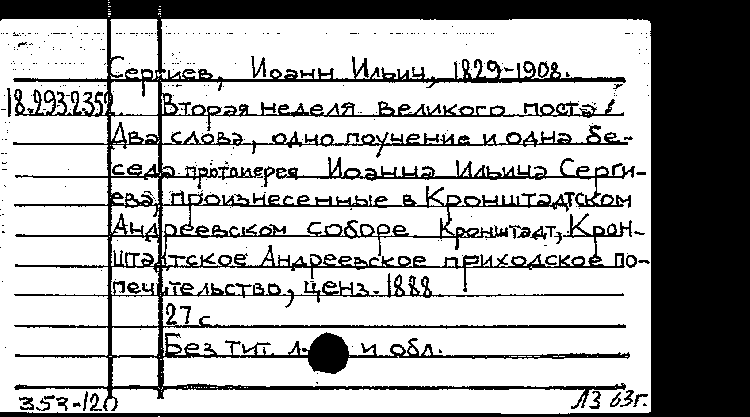 Сергиев, Иоанн Ильич, 1829-1908.
18.293.2352 Вторая неделя великого поста /
Два слова, одно поучение и одна бе-
седа протоиерея Иоанна Ильича Серги-
ева, произнесенные в Кронштадтском
Андреевском соборе. Кронштадт, Крон-
штадтское Андреевское приходское по-
печительство, ценз. 1888
27 с.
Без тит. л. и обл.
353-120 ЛЗ 63г.